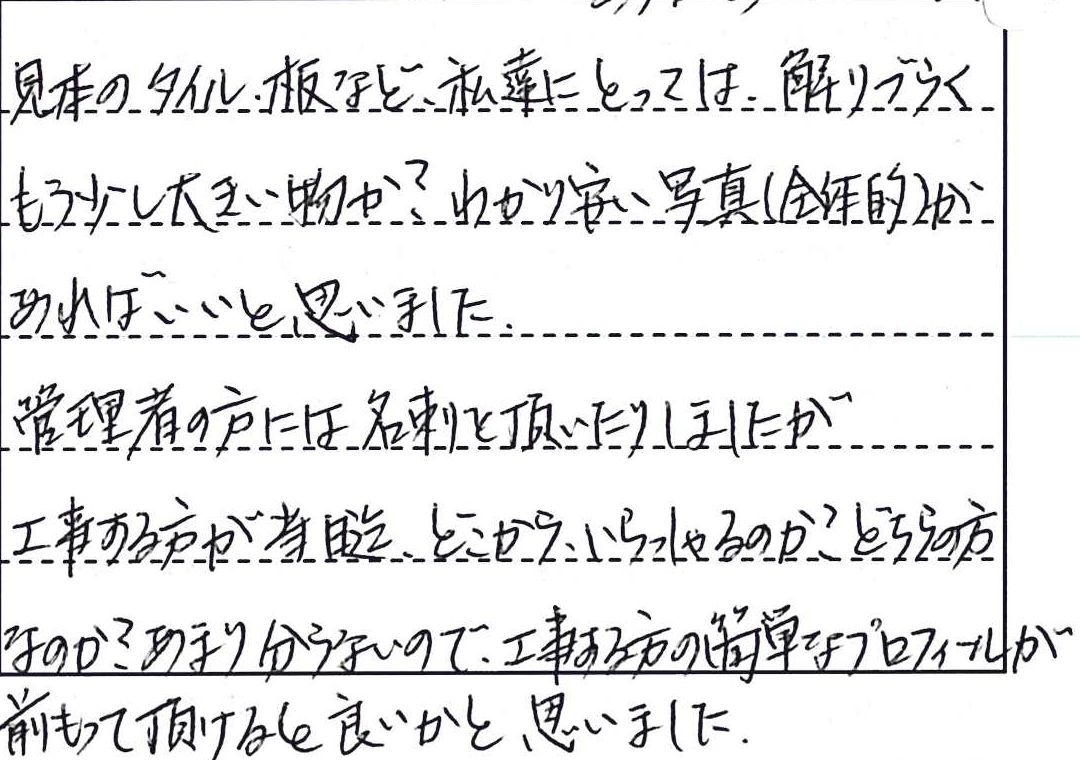 見本のタイル、板など、私達にとっては、解りづらく
もう少し大きい物か?わかり安い写真(全体的)が
あればいいと、思いました。
管理者の方には名刺を頂いたりしましたが
工事する方が普段、どこから、いらっしゃるのか?どちらの方
なのか?あまり分らないので、工事する方の簡単なプロフィールが
前もって頂けると良いかと、思いました。